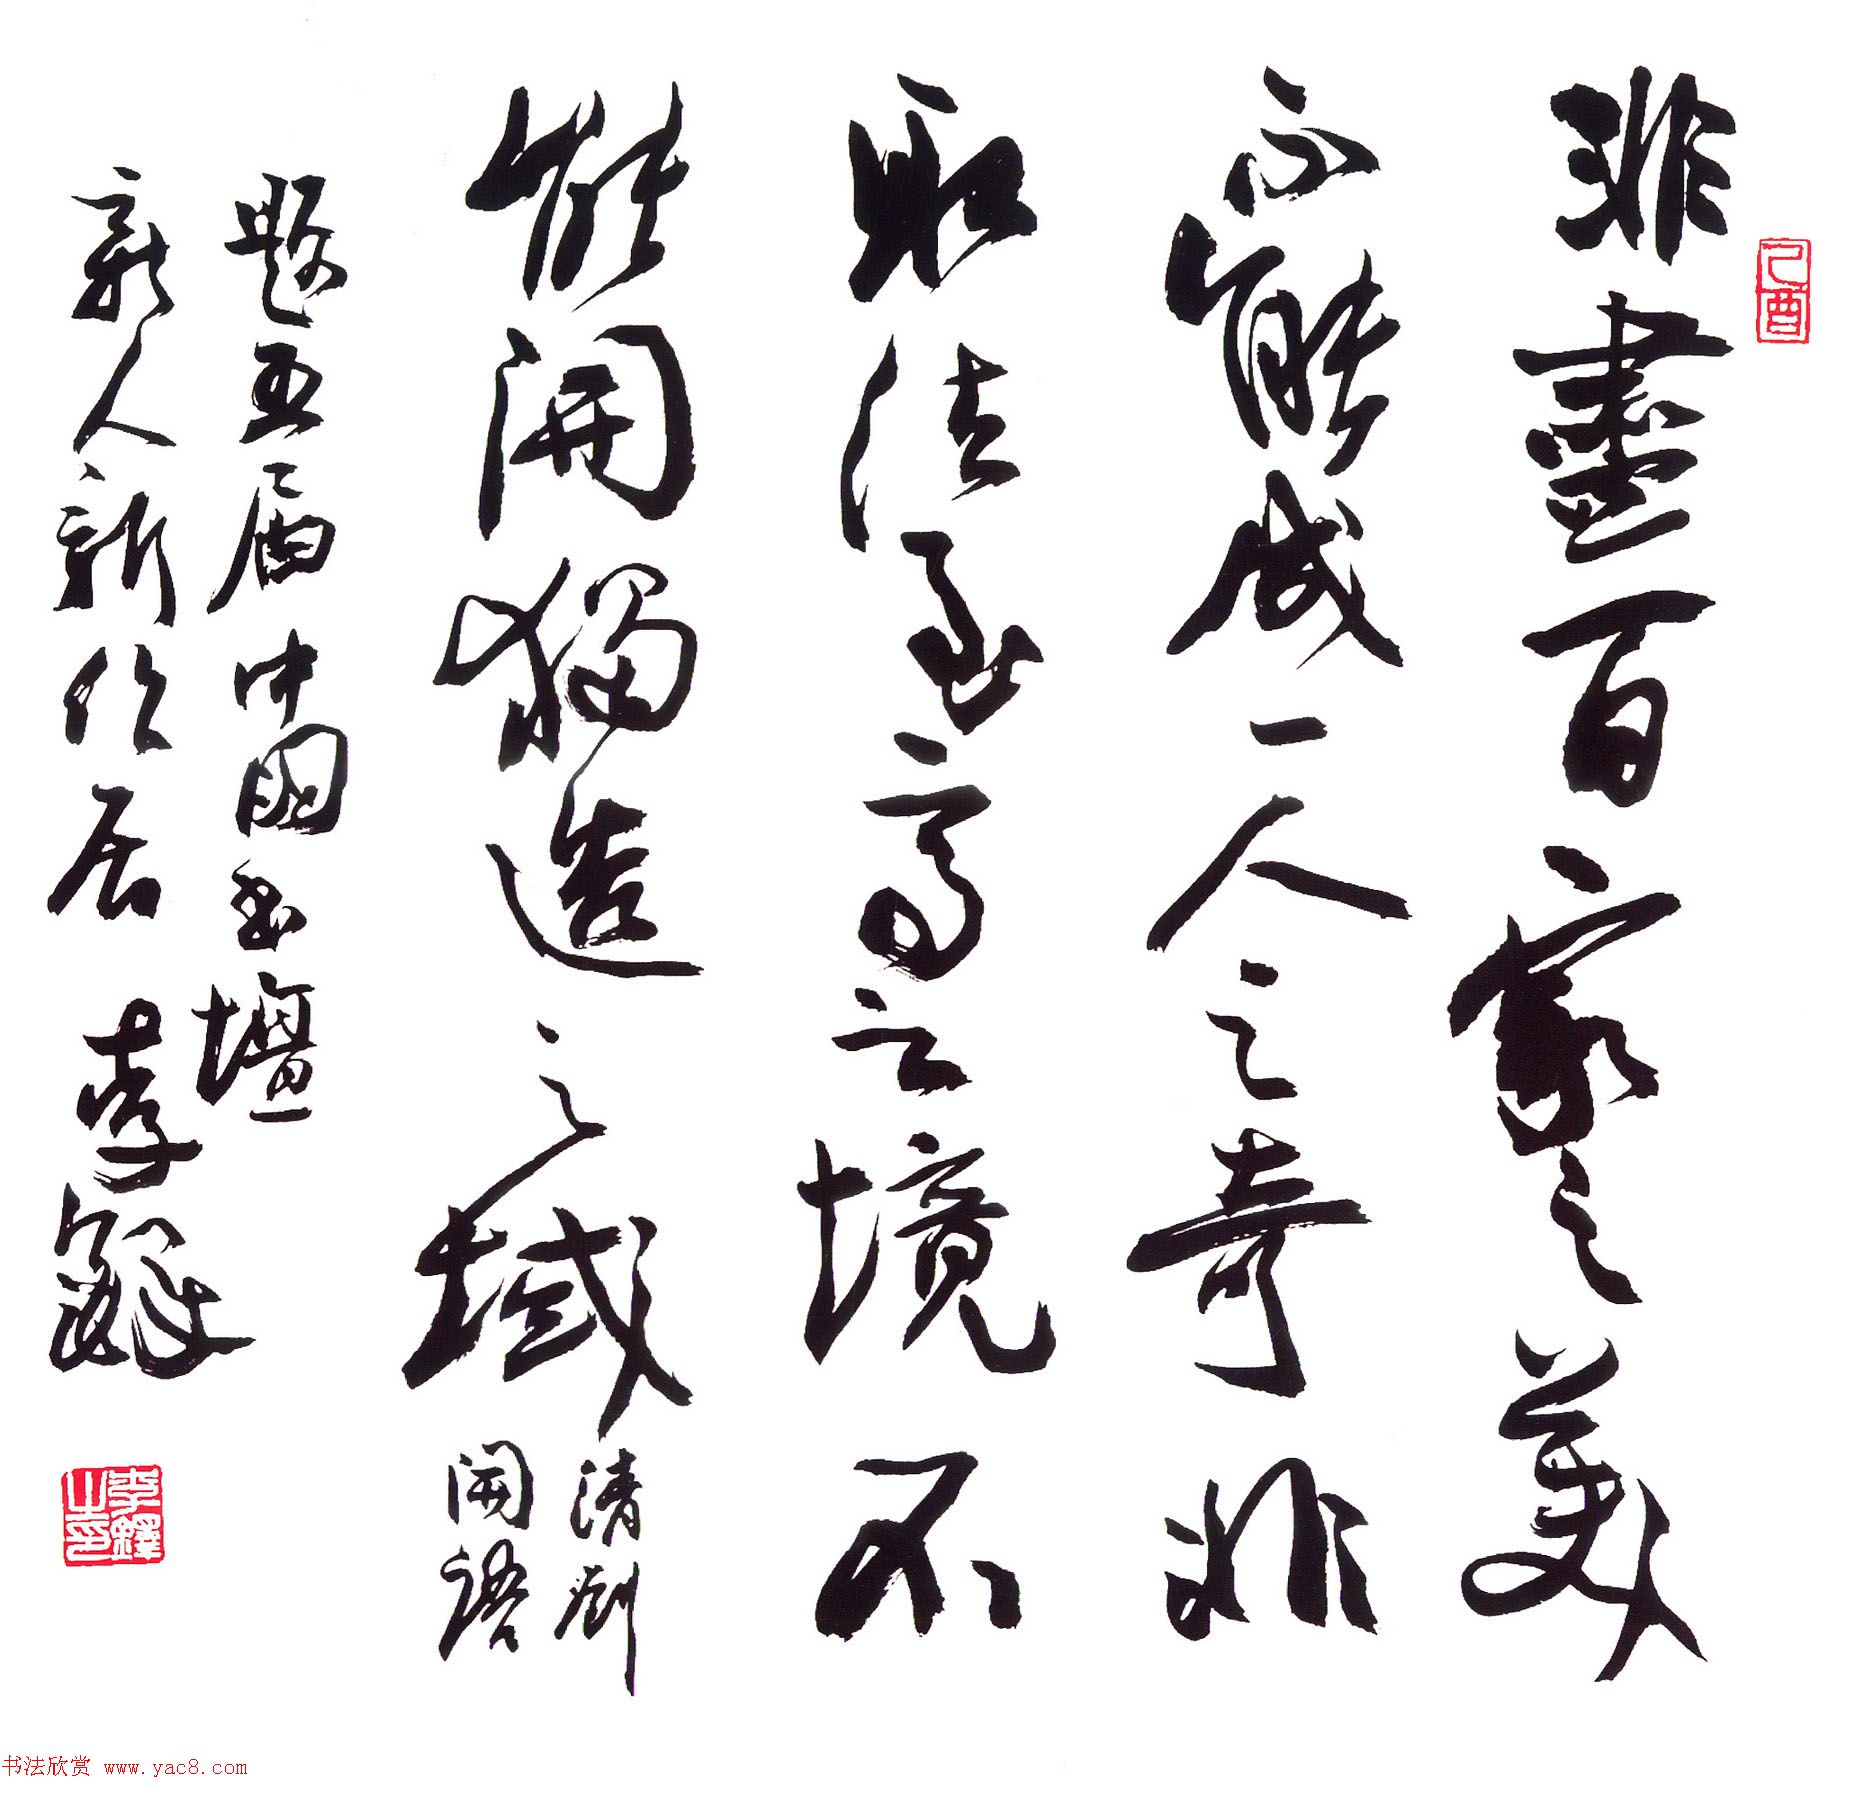 己酉
非盡百家之美
不能成一人之奇非
取法至高之境不
能開獨造之域
清劉
開語
題五届中國書壇
新人新作展
李鐸
李鐸之印
书法欣赏 www.yac8.com